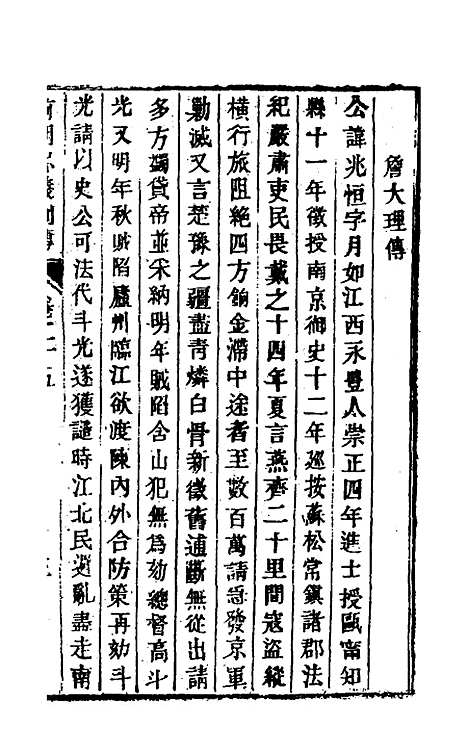 詹大理傳
公諱兆恒字月如江西永豐人崇正四年進士授甌甯知
縣十一年徵授南京御史十二年廵按蘇松常鎮諸郡法
紀嚴肅吏民畏戴之十四年夏言燕齊二十里間寇盜縱
橫行旅阻絶四方餉金滯中途者至數百萬請急發京軍
勦滅又言楚豫之疆盡青燐白骨新徵舊逋斷無從出請
多方蠲貸帝並采納明年賊陷含山犯無為劾總督高斗
光又明年秋賊陷廬州臨江欲渡陳內外合防策再劾斗
光請以史公可法代斗光遂獲譴時江北民避亂盡走南